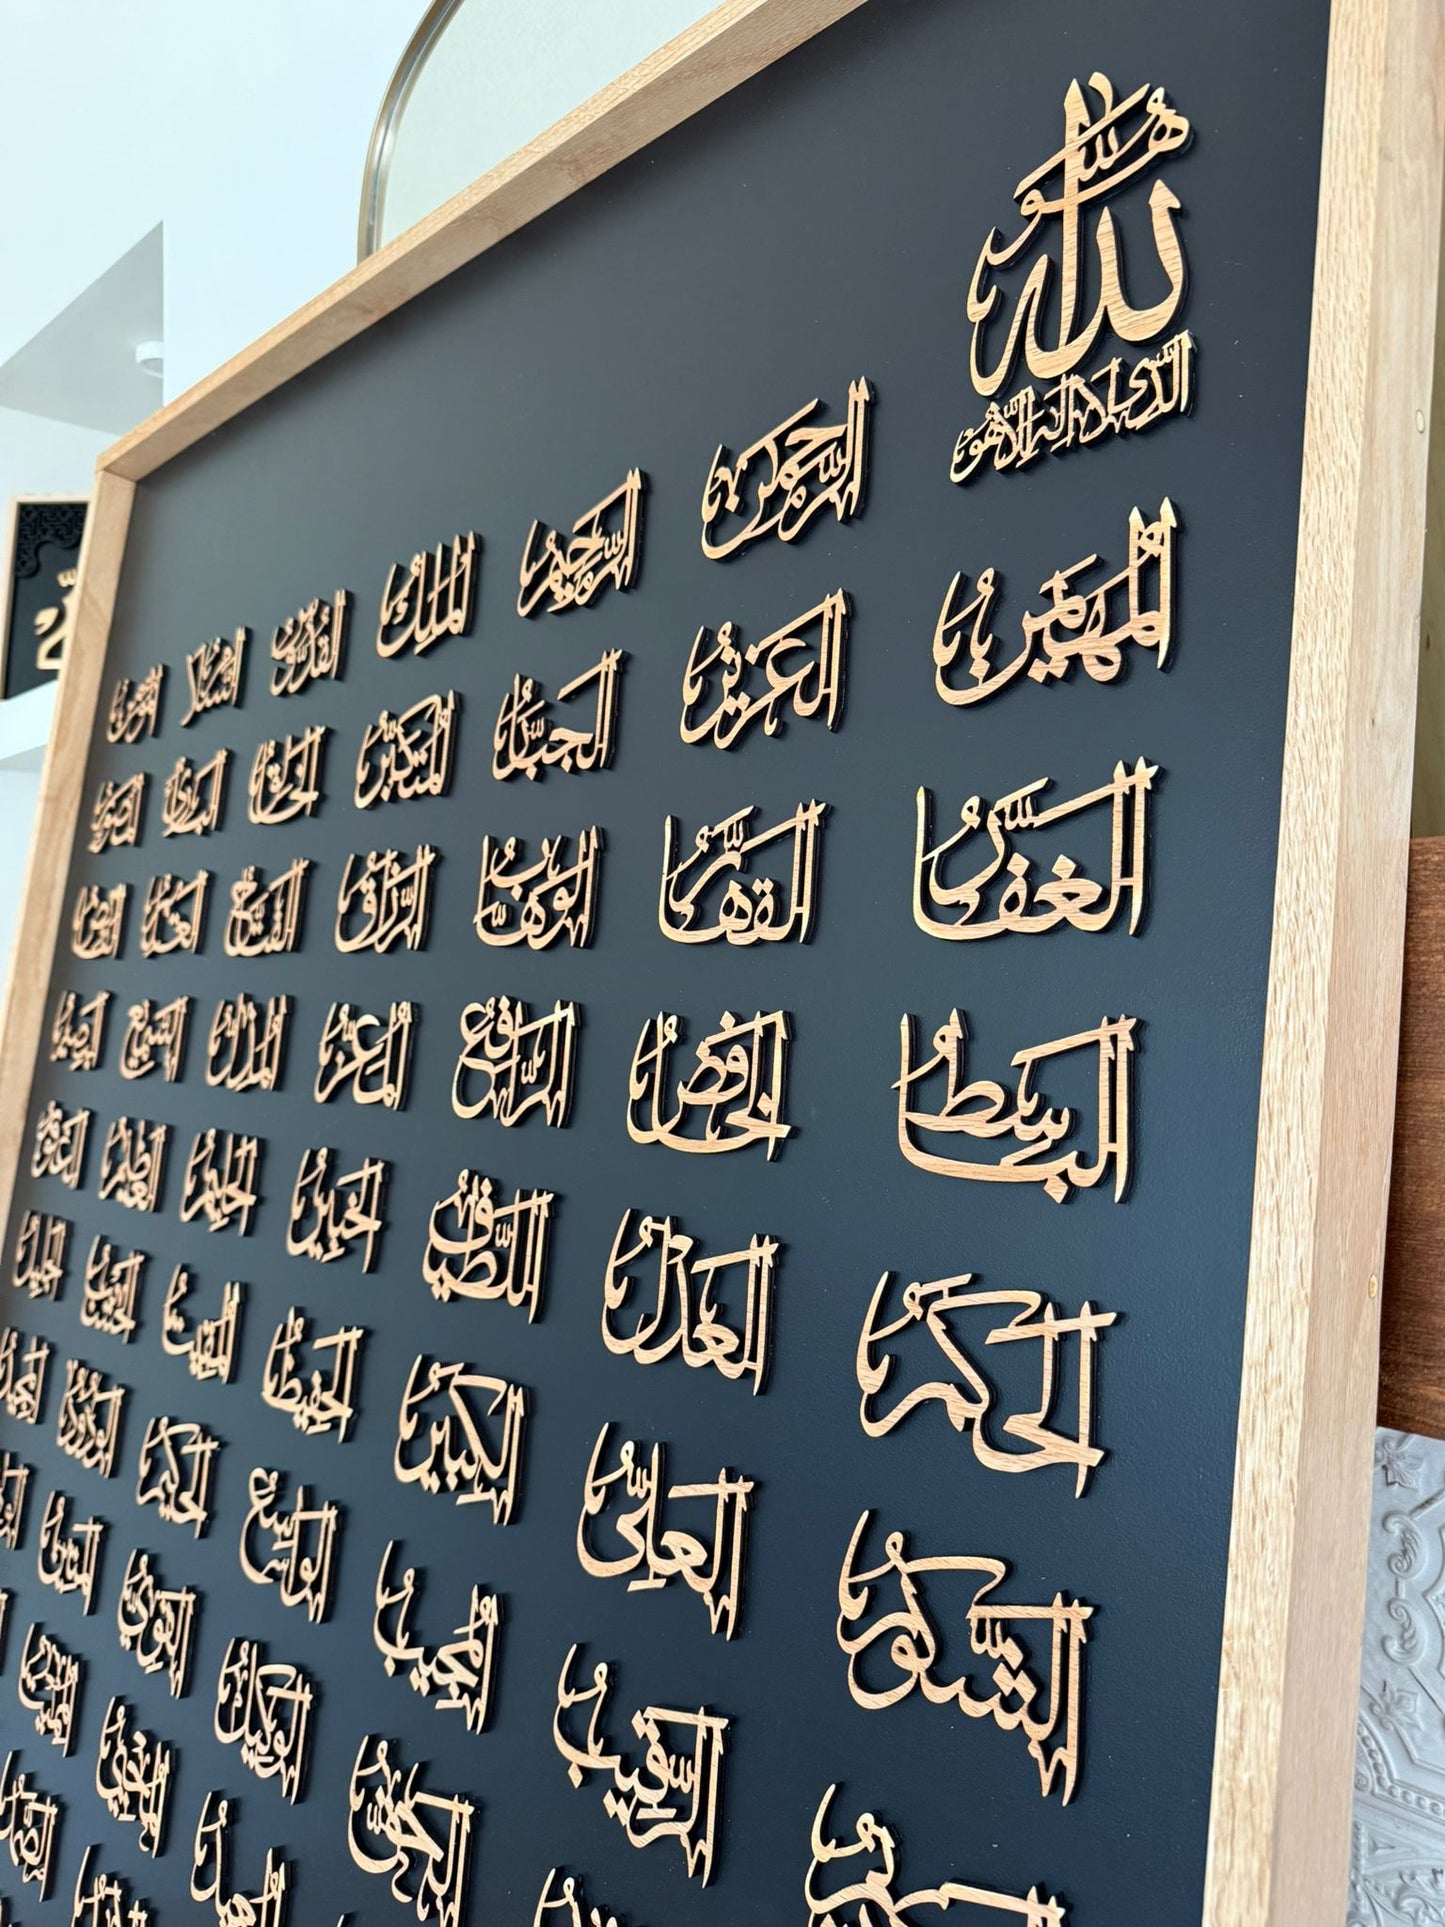 هو الله
الذي لا إله إلا هو
الرحمن الرحيم الملك القدوس السلام المؤمن
المهيمن العزيز الجبار المتكبر الخالق البارئ المصور
الغفار القهار الوهاب الرزاق الفتاح العليم القابض
الباسط الخافض الرافع المعز المذل السميع البصير
الحكم العدل اللطيف الخبير الحليم العظيم الغفور
الشكور العلي الكبير الحفيظ المقيت الحسيب الجليل
الكريم الرقيب المجيب الواسع الحكيم الودود المجيد
الحق الوكيل القوي المتين
المعيد المحيي المميت
الصمد